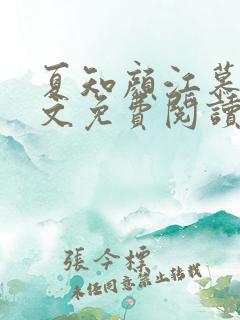 夏知顏江慕
文免費閱讀
張今標
未经同意禁止转载